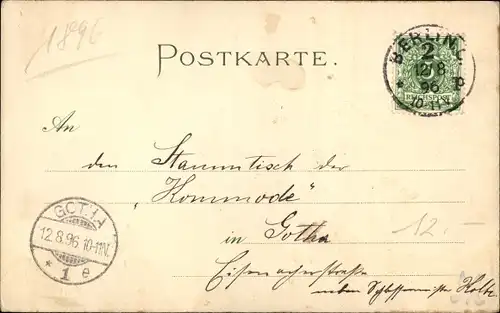 1896
POSTKARTE.
BERLIN
2
12/8
96
10-11V.
REICHSPOST
An
den Stammtisch der
„Kommode“
in Gotha
12.-
Eisenacherstraße
neben Schlossermeister Holtz
GOTHA
12.8.96 10-11N.
* 1 e